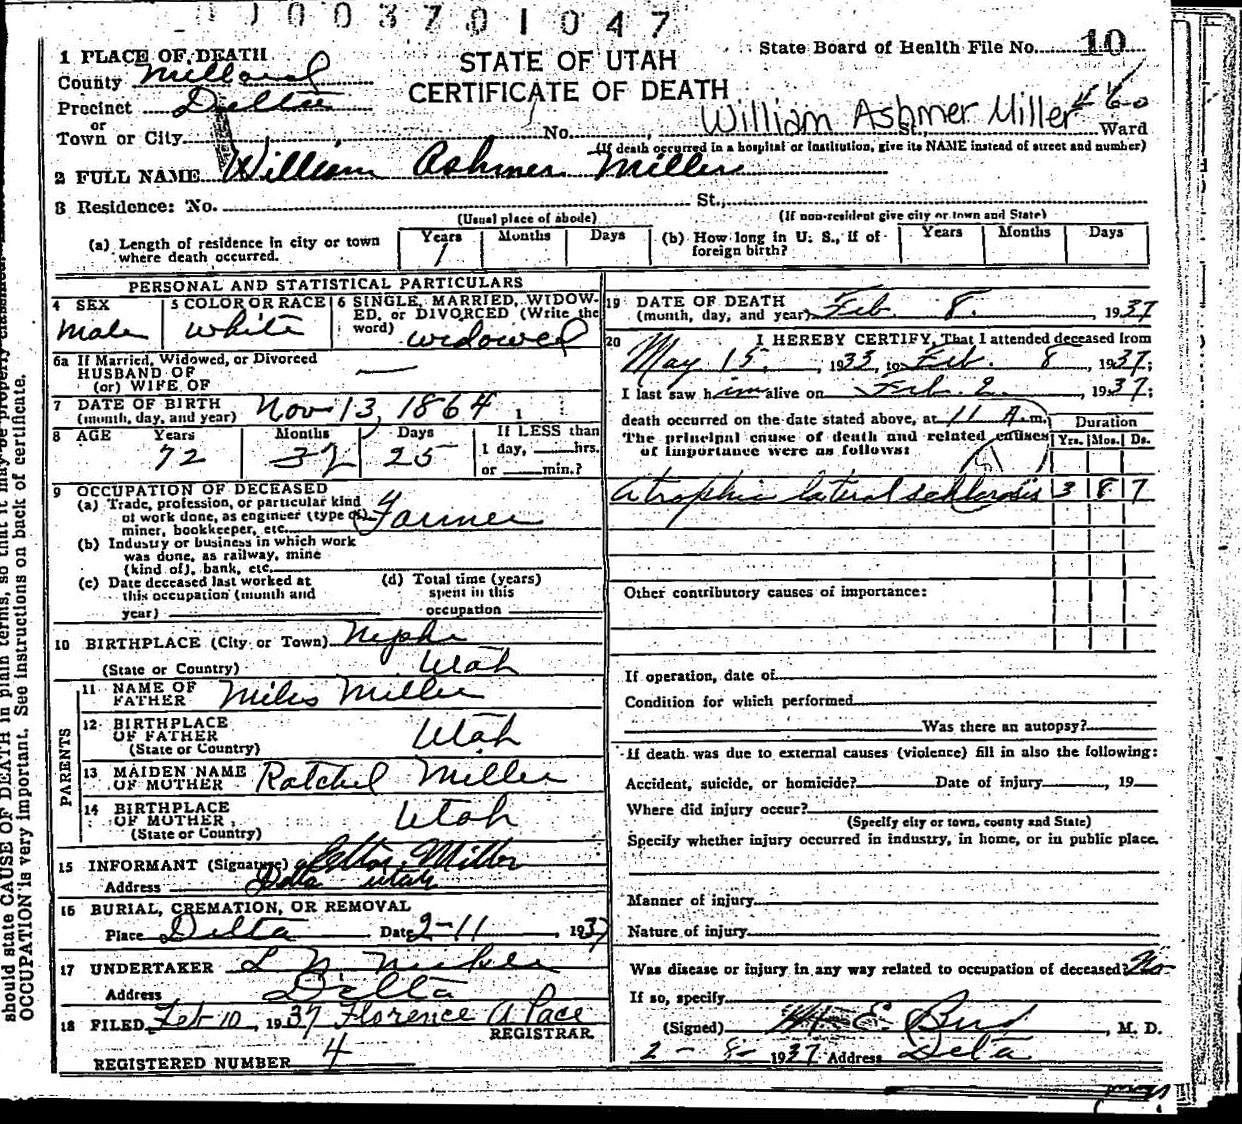 1003701047
1 PLACE OF DEATH
County Millard
Precinct Delta
or
Town or City
STATE OF UTAH
CERTIFICATE OF DEATH
State Board of Health File No. 10
No. St., Ward
William Ashmer Miller
(If death occurred in a hospital or institution, give its NAME instead of street and number)
2 FULL NAME William Ashmer Miller
3 Residence: No. St.,
(Usual place of abode) (If non-resident give city or town and State)
(a) Length of residence in city or town where death occurred. Years Months Days
(b) How long in U. S., if of foreign birth? Years Months Days
PERSONAL AND STATISTICAL PARTICULARS
4 SEX Male
5 COLOR OR RACE White
6 SINGLE, MARRIED, WIDOWED, or DIVORCED (Write the word) widowed
6a If Married, Widowed, or Divorced
HUSBAND OF
(or) WIFE OF —
7 DATE OF BIRTH
(month, day, and year) Nov 13, 1864
8 AGE Years Months Days If LESS than
72 25 1 day, hrs.
or min.?
9 OCCUPATION OF DECEASED
(a) Trade, profession, or particular kind
of work done, as engineer (type of)
miner, bookkeeper, etc. Farmer
(b) Industry or business in which work
was done, as railway, mine
(kind of), bank, etc.
(c) Date deceased last worked at
this occupation (month and
year)
(d) Total time (years)
spent in this
occupation
10 BIRTHPLACE (City or Town) Nephi
(State or Country) Utah
PARENTS
11 NAME OF
FATHER Miles Miller
12 BIRTHPLACE
OF FATHER
(State or Country) Utah
13 MAIDEN NAME
OF MOTHER Ratchel Miller
14 BIRTHPLACE
OF MOTHER
(State or Country) Utah
15 INFORMANT (Signature) Miller
Address Delta Utah
16 BURIAL, CREMATION, OR REMOVAL
Place Delta Date 2-11, 1937
17 UNDERTAKER
Address Delta
18 FILED Feb 10, 1937 Florence A Pace
REGISTRAR
REGISTERED NUMBER 4
19 DATE OF DEATH
(month, day, and year) Feb. 8., 1937
20 I HEREBY CERTIFY, That I attended deceased from
May 15., 1933, to Feb. 8, 1937;
I last saw him alive on Feb. 2, 1937;
death occurred on the date stated above, at 11 A.m.
The principal cause of death and related causes
of importance were as follows:
Duration
Yrs. Mos. Ds.
Atrophic lateral schlorosis 3 8 7
Other contributory causes of importance:
If operation, date of
Condition for which performed
Was there an autopsy?
If death was due to external causes (violence) fill in also the following:
Accident, suicide, or homicide? Date of injury, 19
Where did injury occur?
(Specify city or town, county and State)
Specify whether injury occurred in industry, in home, or in public place.
Manner of injury
Nature of injury
Was disease or injury in any way related to occupation of deceased? No
If so, specify
(Signed) E., M. D.
2-8-1937 Address Delta
should state CAUSE OF DEATH in plain terms, so that it may be properly
OCCUPATION is very important. See instructions on back of certificate.